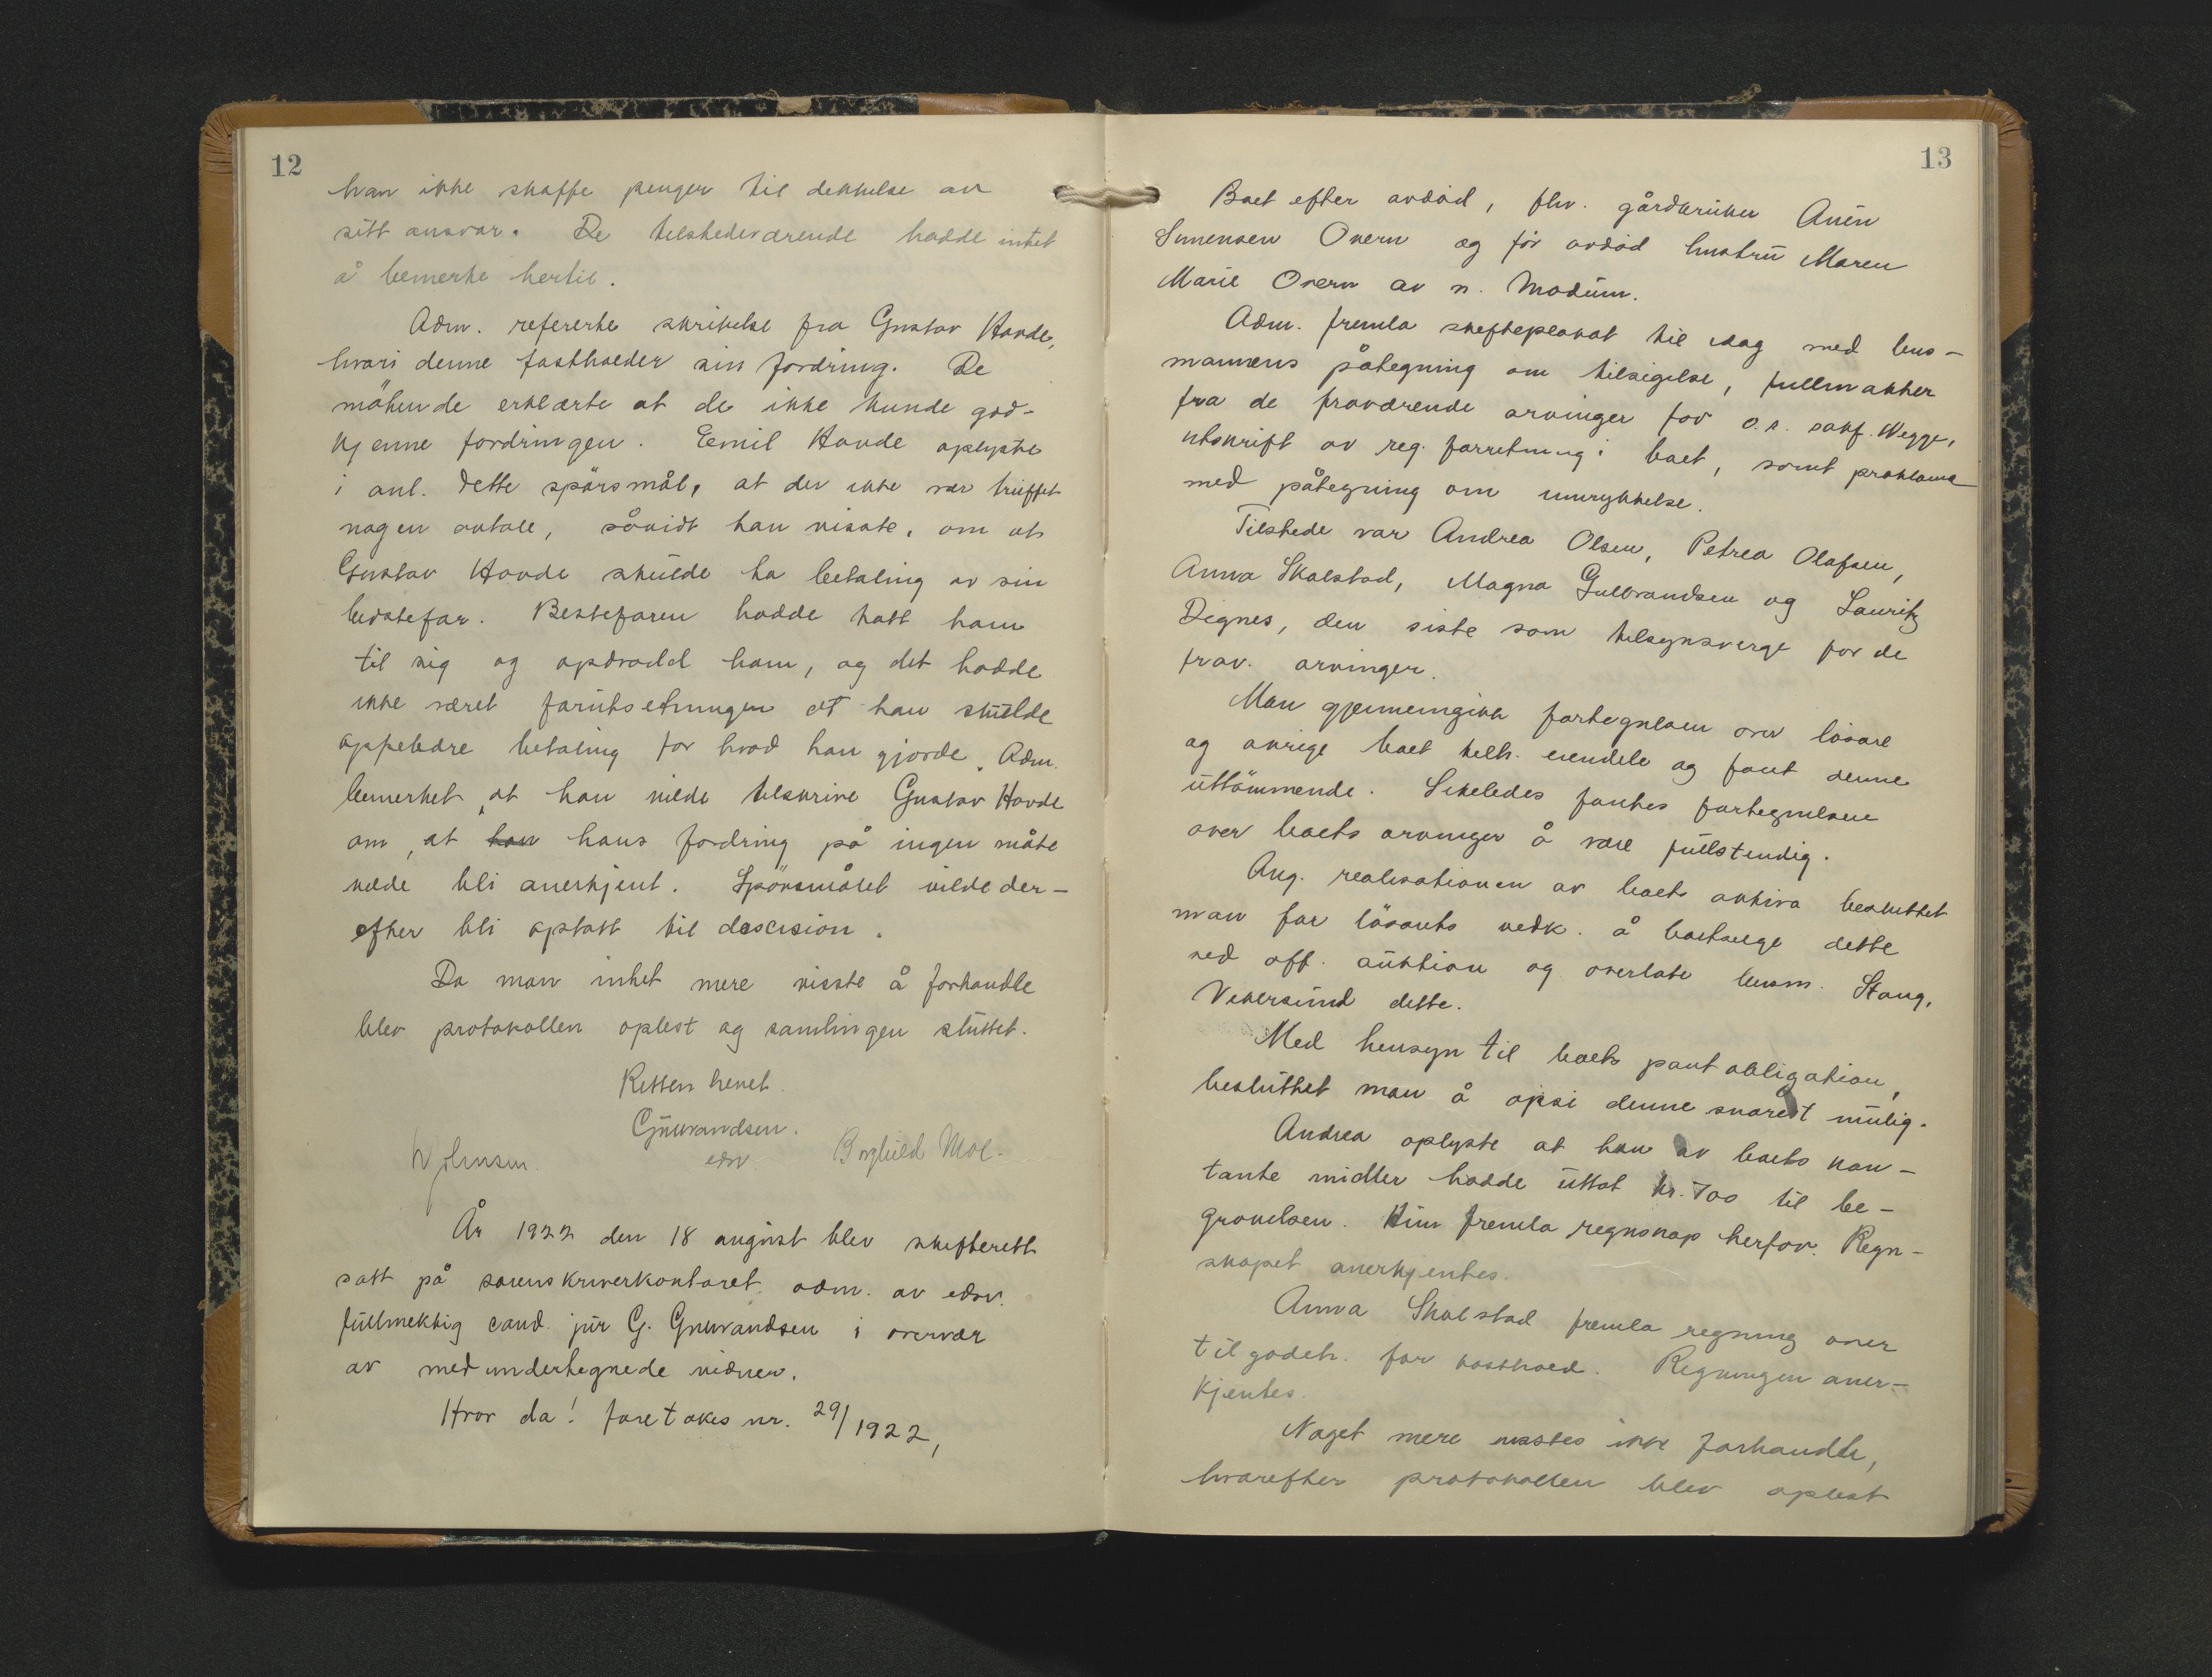 12
kan ikke skaffe penger til dekkelse av
sitt ansvar. De tilstedeværende hadde intet
å bemerke hertil.
Adm. refererte skrivelse fra Gustav Hovde,
hvori denne fastholder sin fordring. De
møtende erklærte at de ikke kunde god-
kjenne fordringen. Emil Hovde oplyste
i anl. dette spørsmål, at der ikke var truffet
nogen avtale, såvidt han visste, om at
Gustav Hovde skulde ha betaling av sin
bestefar. Bestefaren hadde hatt ham
til sig og opdradd ham, og det hadde
ikke været forutsetningen at han skulde
oppebære betaling for hvad han gjorde. Adm.
bemerket, at han vilde tilskrive Gustav Hovde
om, at han hans fordring på ingen måte
vilde bli anerkjent. Spørsmålet vilde der-
efter bli optatt til descision.
Da man intet mere visste å forhandle
blev protokollen oplest og samlingen sluttet.
Retten hevet.
Gulbrandsen.
edsv.
Borghild Moe.
År 1922 den 18 august blev skifterett
satt på sorenskriverkontoret adm. av edsv.
fullmektig cand. jur G. Gulbrandsen i overvær
av medundertegnede vidner.
Hvor da! foretokes nr. 29/1922,
13
Boet efter avdød, fhv. gårdbruker Auen
Simensen Overn og før avdød hustru Maren
Marie Overn av n. Modum.
Adm. fremla skifteplakat til idag med lens-
mannens påtegning om tilsigelse, fullmakter
fra de fraværende arvinger for o.r. sakf. Wegge,
utskrift av reg. forretning i boet, samt proklama
med påtegning om innrykkelse.
Tilstede var Andrea Olsen, Petrea Olafsen,
Anna Skalstad, Magna Gulbrandsen og Lauritz
Dignes, den siste som tilsynsverge for de
frav. arvinger.
Man gjennemgikk fortegnelsen over løsøre
og øvrige boet tilh. eiendele og fant denne
uttømmende. Likeledes fantes fortegnelsen
over boets arvinger å være fullstendig.
Ang. realisationen av boets aktiva besluttet
man for løsørets vedk. å bortselge dette
ved off. auktion og overlate lensm. Stang,
Vikersund dette.
Med hensyn til boets pantobligation,
besluttet man å opsi denne snarest mulig.
Andrea oplyste at hun av boets kon-
tante midler hadde uttat kr. 700 til be-
gravelsen. Hun fremla regnskap herfor. Regn-
skapet anerkjentes.
Anna Skalstad fremla regning over
tilgodeh. for kosthold. Regningen aner-
kjentes.
Noget mere visstes ikke forhandle,
hvorefter protokollen blev oplest